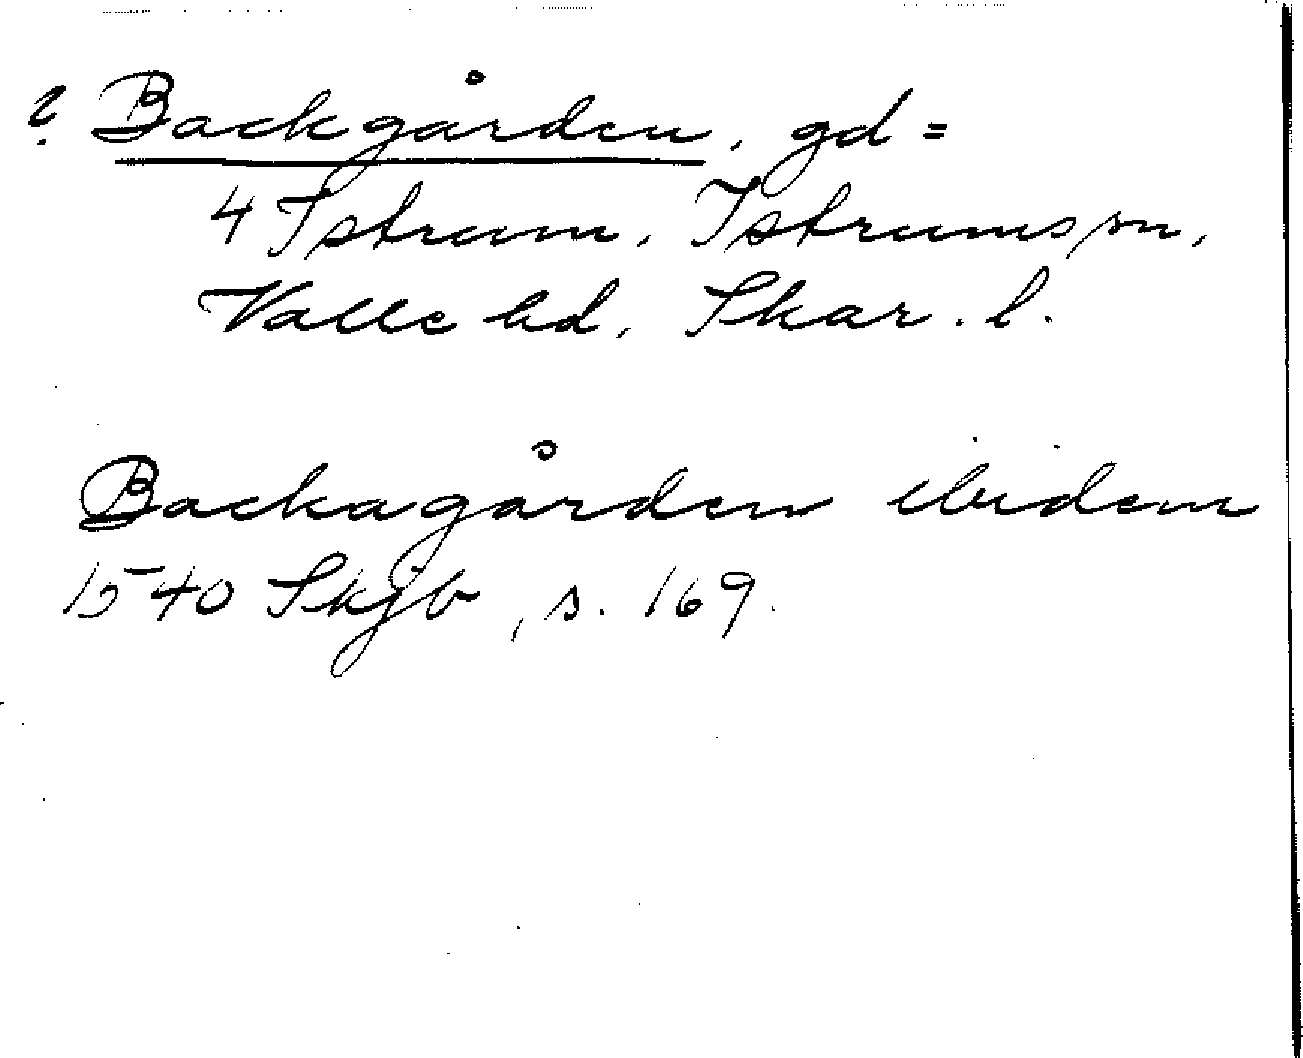 ? Backgården, gd =
4 Istrum, Istrums sn,
Valle hd, Skar. l.
Backagården ibidem
1540 Skjb, s. 169.